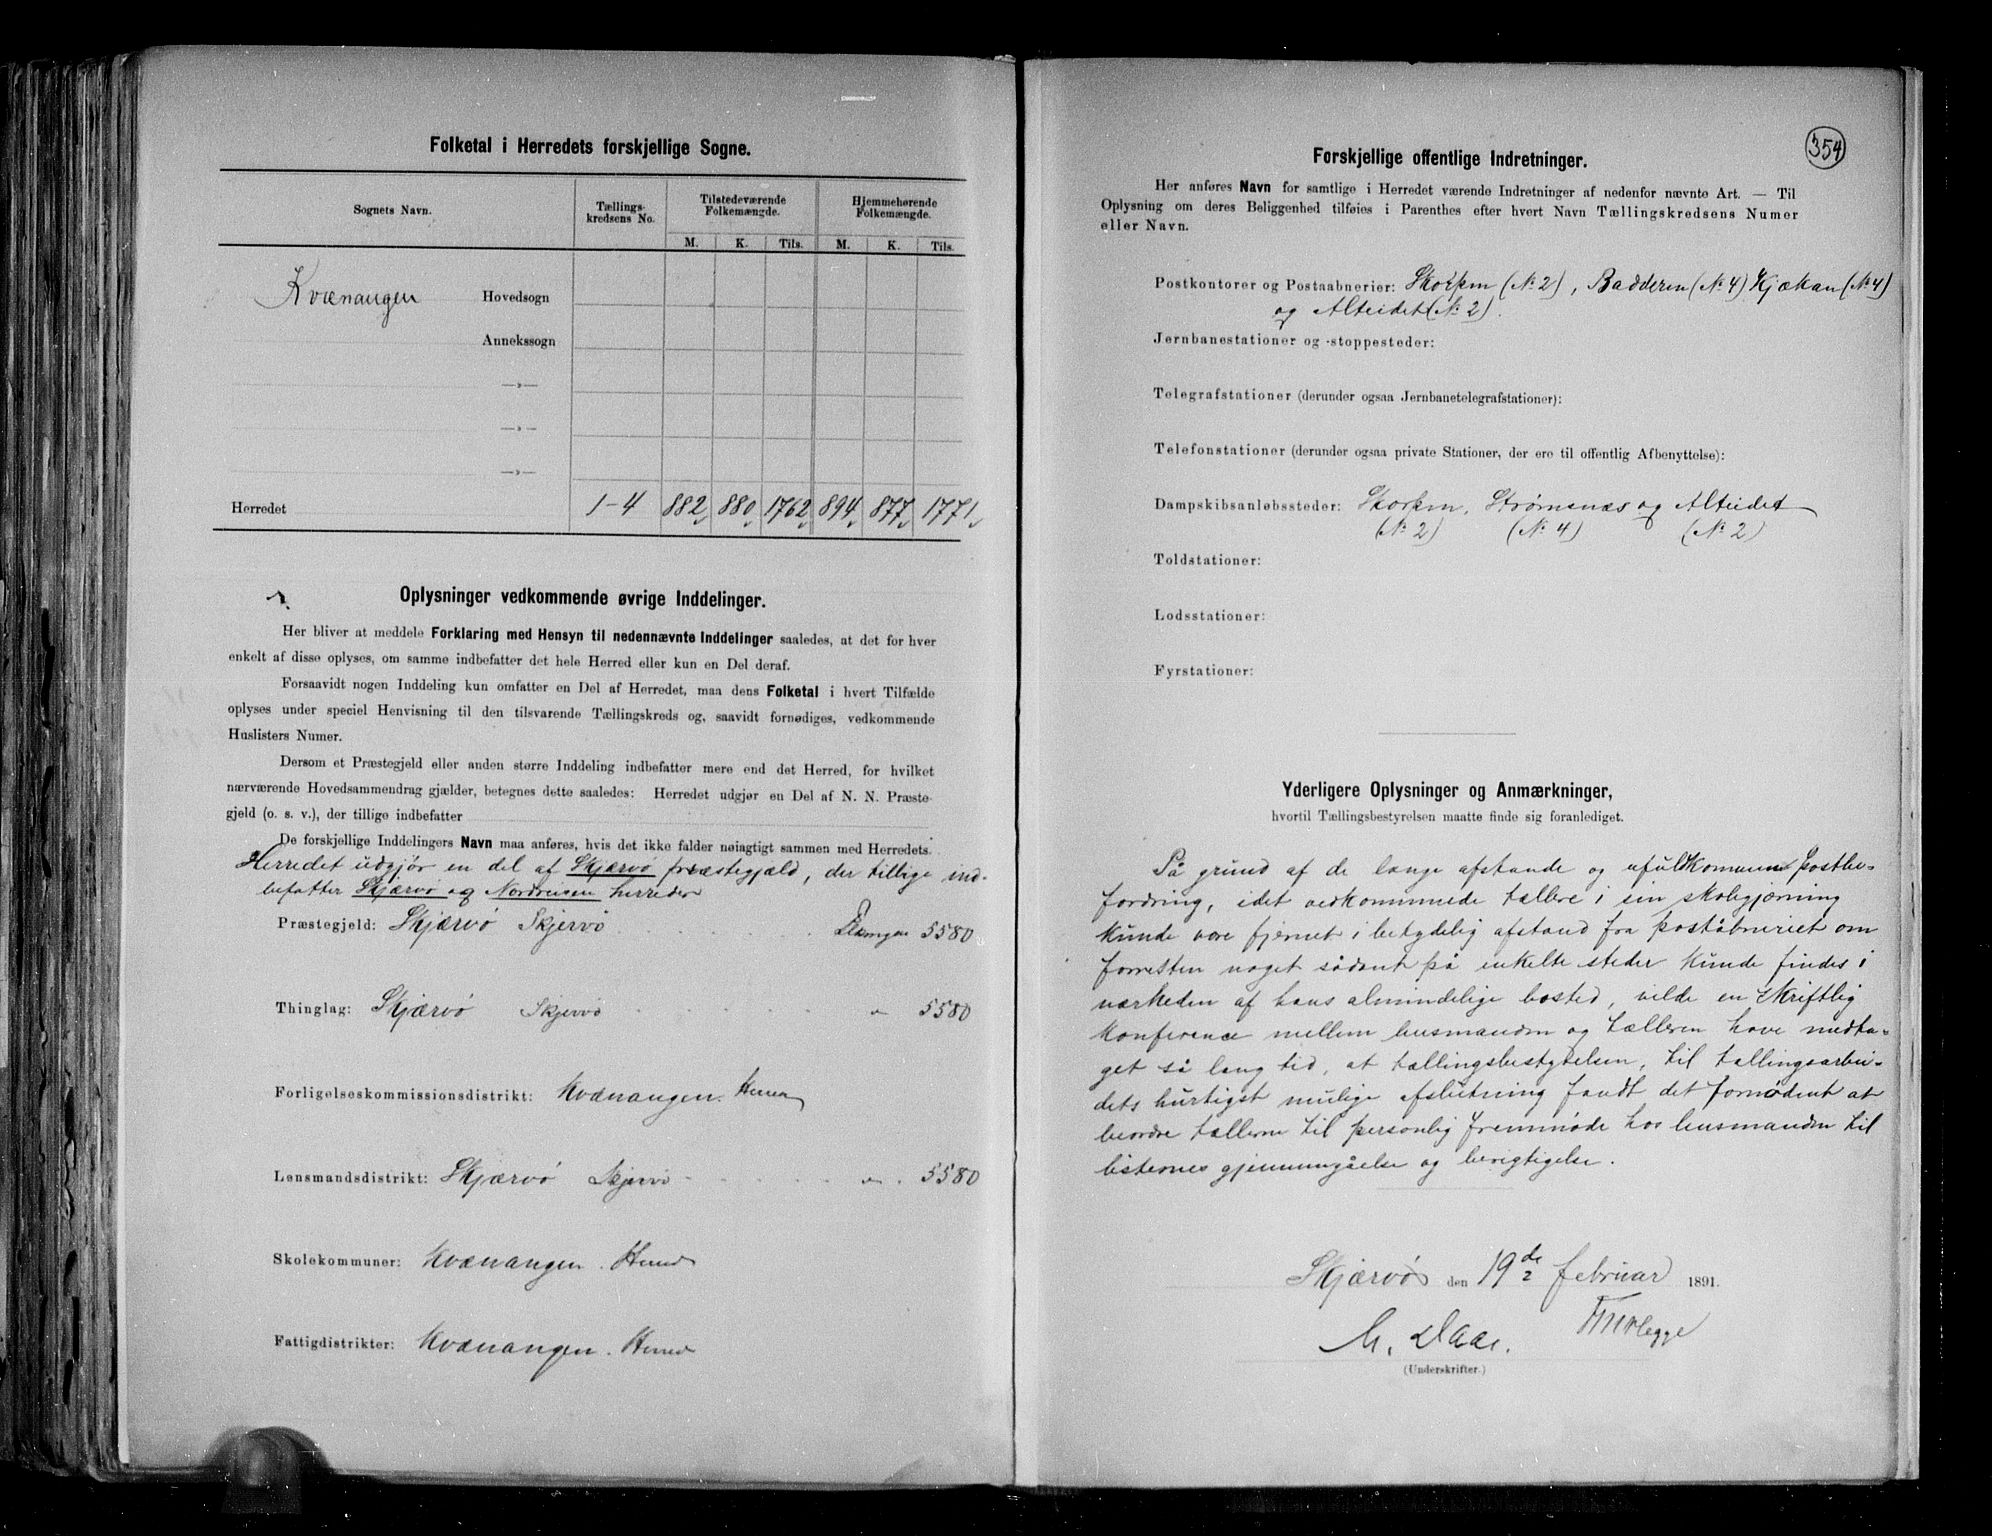 Folketal i Herredets forskjellige Sogne.
Sognets Navn.
Tællings-
kredsens No.
Tilstedeværende
Folkemængde.
Hjemmehørende
Folkemængde.
M. K. Tils. M. K. Tils.
Kvænangen Hovedsogn
Annekssogn
—»—
—»—
—»—
Herredet 1-4 882 880 1762 894 877 1771
Oplysninger vedkommende øvrige Inddelinger.
Her bliver at meddele Forklaring med Hensyn til nedennævnte Inddelinger saaledes, at det for hver
enkelt af disse oplyses, om samme indbefatter det hele Herred eller kun en Del deraf.
Forsaavidt nogen Inddeling kun omfatter en Del af Herredet, maa dens Folketal i hvert Tilfælde
oplyses under speciel Henvisning til den tilsvarende Tællingskreds og, saavidt fornødiges, vedkommende
Huslisters Numer.
Dersom et Præstegjeld eller anden større Inddeling indbefatter mere end det Herred, for hvilket
nærværende Hovedsammendrag gjælder, betegnes dette saaledes: Herredet udgjør en Del af N. N. Præste-
gjeld (o. s. v.), der tillige indbefatter
De forskjellige Inddelingers Navn maa anføres, hvis det ikke falder nøiagtigt sammen med Herredets.
Herredet udgjør en del af Skjærvø præstegjæld, der tillige ind-
befatter Skjærvø og Nordreisen herreder
Præstegjeld: Skjærvø Skjervø 5580
Thinglag: Skjærvø Skjervø " 5580
Forligelseskommissionsdistrikt: Kvænangen. Herred
Lensmandsdistrikt: Skjærvø Skjervø " 5580
Skolekommuner: Kvænangen. Herred
Fattigdistrikter: Kvænangen. Herred
354
Forskjellige offentlige Indretninger.
Her anføres Navn for samtlige i Herredet værende Indretninger af nedenfor nævnte Art. — Til
Oplysning om deres Beliggenhed tilføies i Parenthes efter hvert Navn Tællingskredsens Numer
eller Navn.
Postkontorer og Postaabnerier: Skorpen (No 2), Badderen (No 4) Kjækan (No 4)
og Alteidet (No 2).
Jernbanestationer og -stoppesteder:
Telegrafstationer (derunder ogsaa Jernbanetelegrafstationer):
Telefonstationer (derunder ogsaa private Stationer, der ere til offentlig Afbenyttelse):
Dampskibsanløbssteder: Skorpen, Strømsnæs og Alteidet
(No 2) (No 4) (No 2)
Toldstationer:
Lodsstationer:
Fyrstationer:
Yderligere Oplysninger og Anmærkninger,
hvortil Tællingsbestyrelsen maatte finde sig foranlediget.
På grund af de lange afstande og ufuldkommene postbe-
fordring, idet vedkommende tællere i sin skolegjerning
kunde være fjernet i betydelig afstand fra poståbneriet om
forresten noget sådant på enkelte steder kunde findes i
nærheden af hans almindelige bosted, vilde en skriftlig
konference mellem husmanden og tælleren have medta-
get så lang tid, at tællingsbestyrelsen, til tællingsarbei-
dets hurtigst mulige afslutning fandt det fornødent at
beordre tællerne til personlig fremmøde hos husmanden til
listernes gjennemgåelse og berigtigelse.
Skjærvø den 19de februar 1891.
2
M. Daae.
(Underskrifter.)